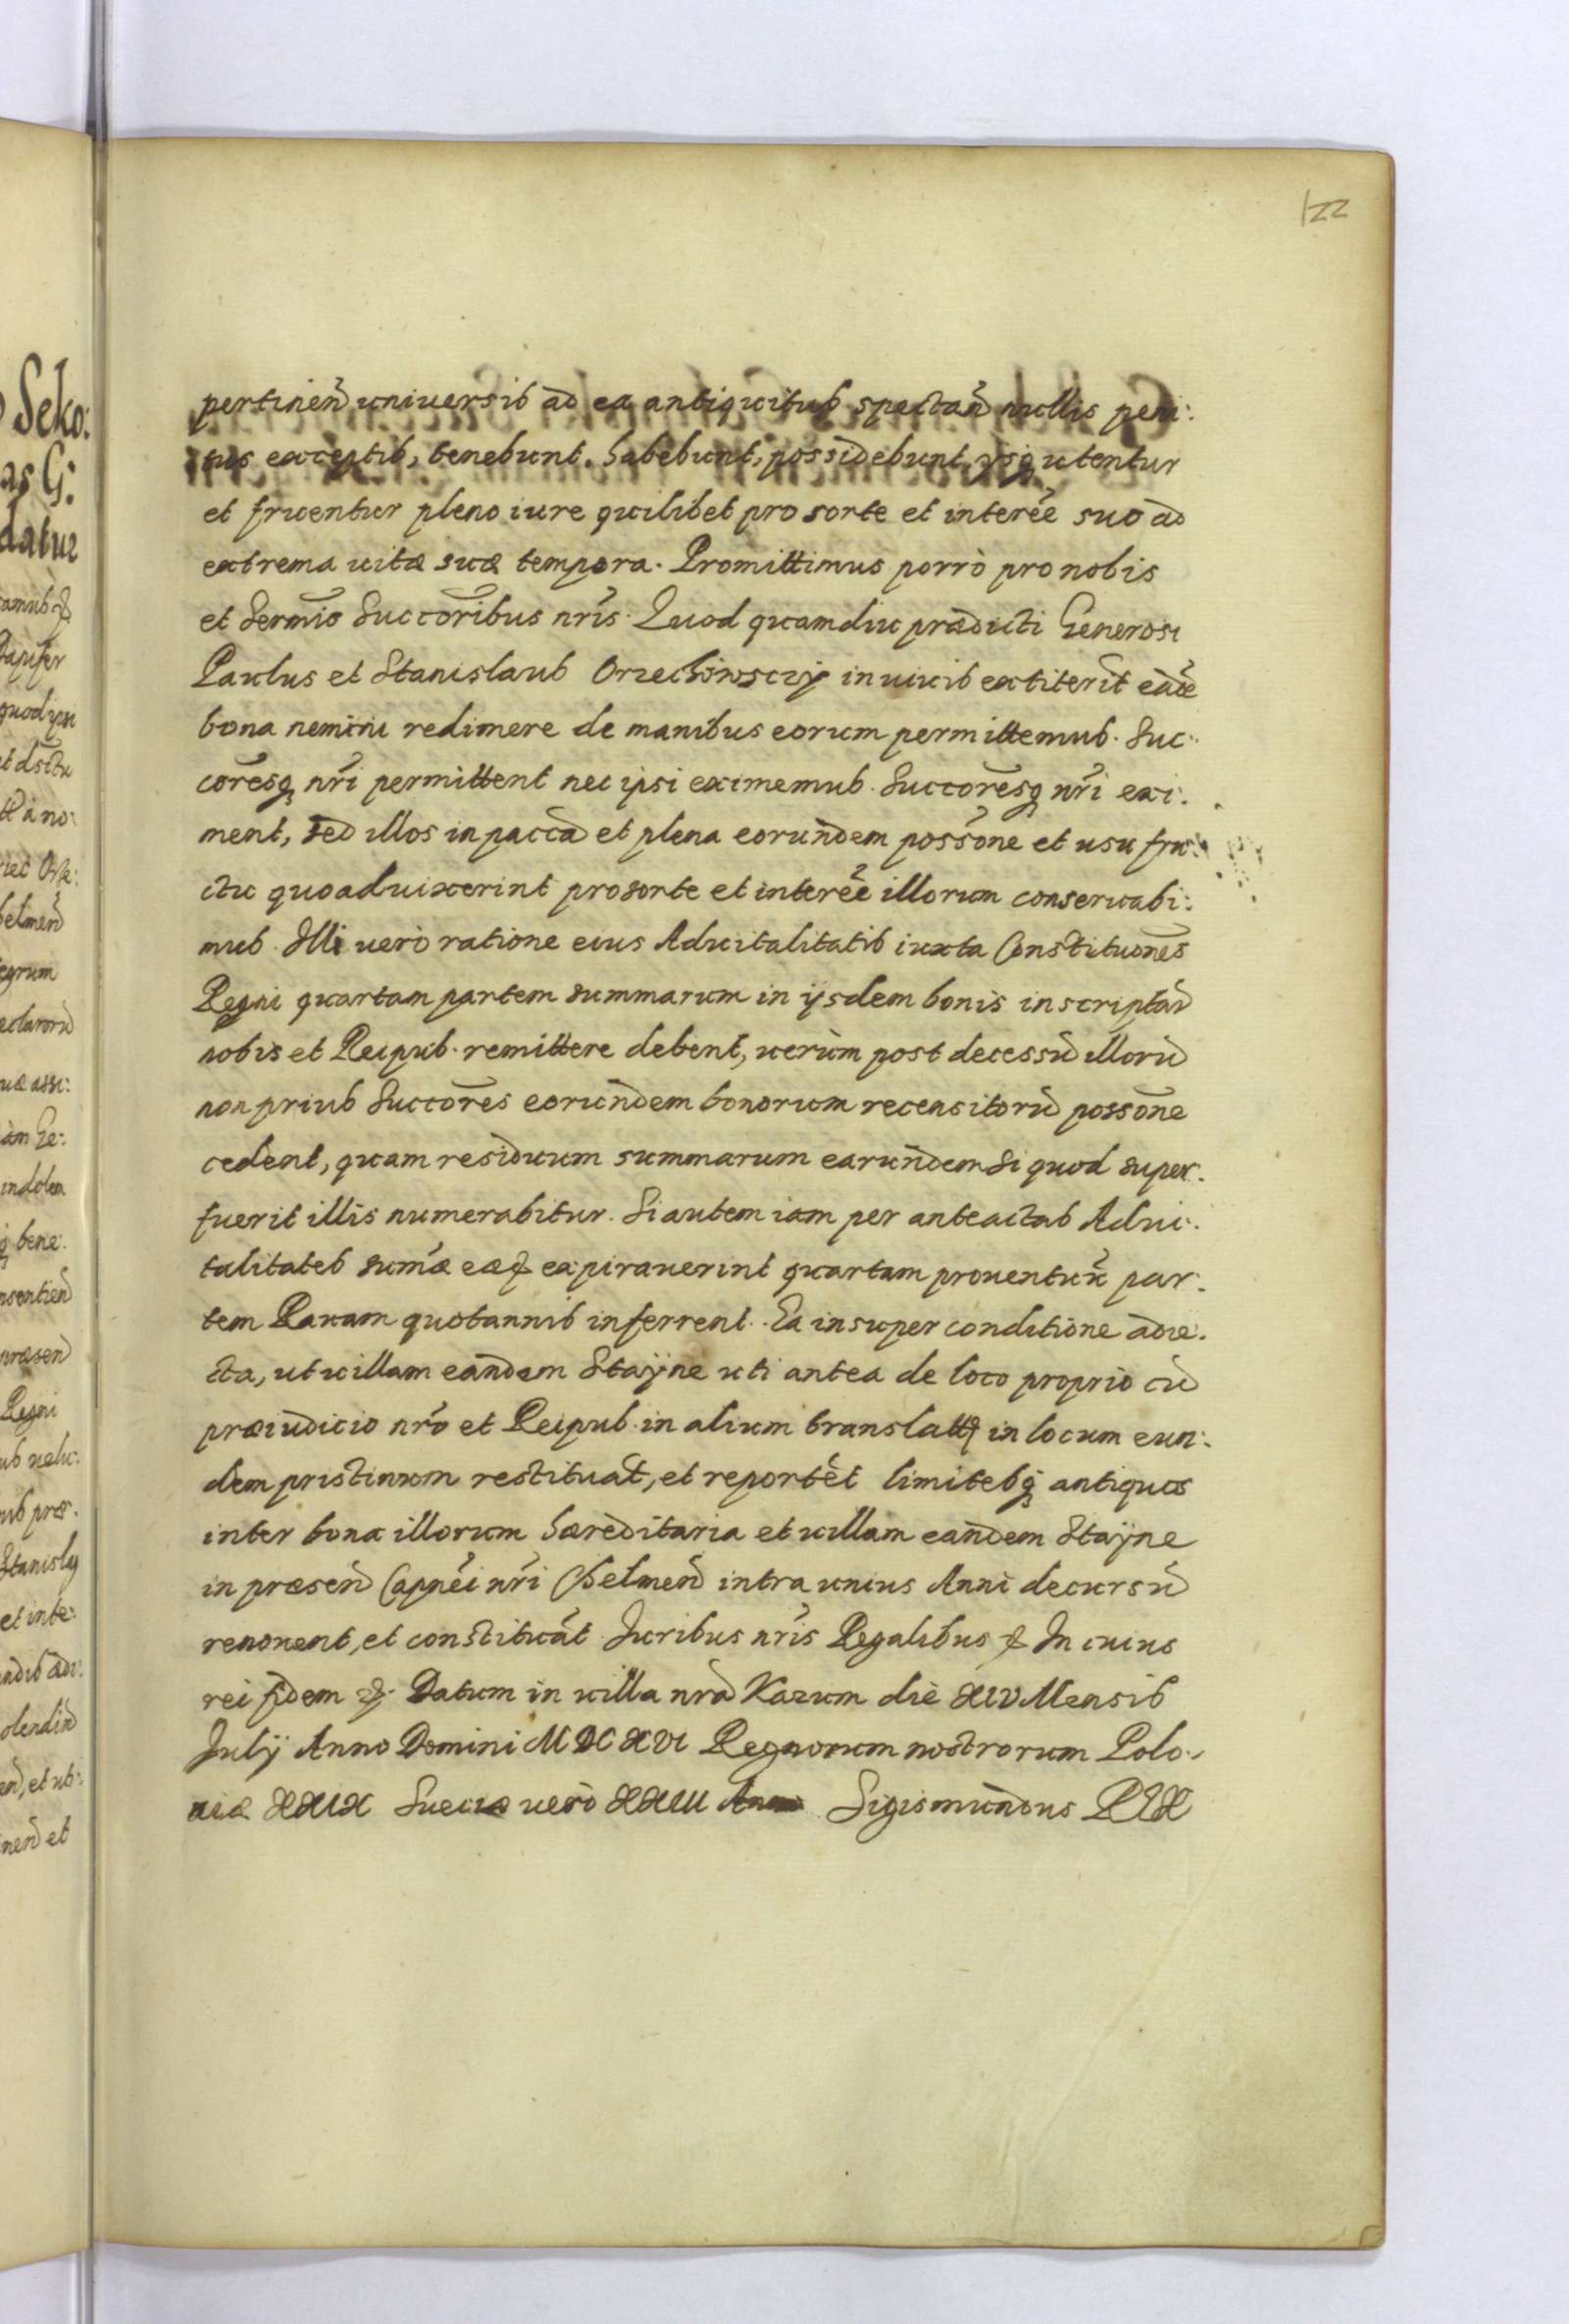 122
pertineñ universis ad ea antiquitus spectañ nullis peni:
tus exceptis, tenebunt, habebunt, possidebunt, ysq utentur
et fruentur pleno iure quilibet pro sorte et interēe suo ad
extrema uitæ suæ tempora. Promittimus porrò pro nobis
et Sermis Succoribus nris. Quod quamdiu prædicti Generosi
Paulus et Stanislaus Orzechowsczy in uiuis extiterit eade
bona nemini redimere de manibus eorum permittemus. Suc:
coresq nri permittent nec ipsi eximemus. Succoresq nri exi:
ment, sed illos in paccā et plena eorundem possone et usu fru:
ctu quoaduixerint pro sorte et interēe illorum conseruabi:
mus. Illi uerò ratione eius Aduitalitatis iuxta Constitutiones
Regni quartam partem summarum in ijsdem bonis inscriptar
nobis et Reipub. remittere debent, uerùm post decessū illorū
non prius Succores eorundem bonorum recensitorū possone
cedent, quam residuum summarum earundem si quod super:
fuerit illis numerabitur. Si autem iam per anteactas Adui:
talitates sumæ eæ expirauerint quartam prouentuū par:
tem Rauam quotannis inferrent. Ea insuper conditione adie:
cta, ut uillam eandem Stayne uti antea de loco proprio cū
præiudicio nro et Reipub. in alium translatt in locum eun:
dem pristinum restituāt, et reportēt limitesq antiquos
inter bona illorum hæreditaria et uillam eandem Stayne
in præseñ Capnei nri Chelmeñ intra unius Anni decursū
renouent, et constituāt Iuribus nris Regalibus & In cuius
rei fidem &. Datum in uilla nra Kazum die XIV Mensis
Julij Anno Domini MDCXVI Regnorum nostrorum Polo:
niæ XXIX Sueciæ uerò XXIII Sigismundus REX